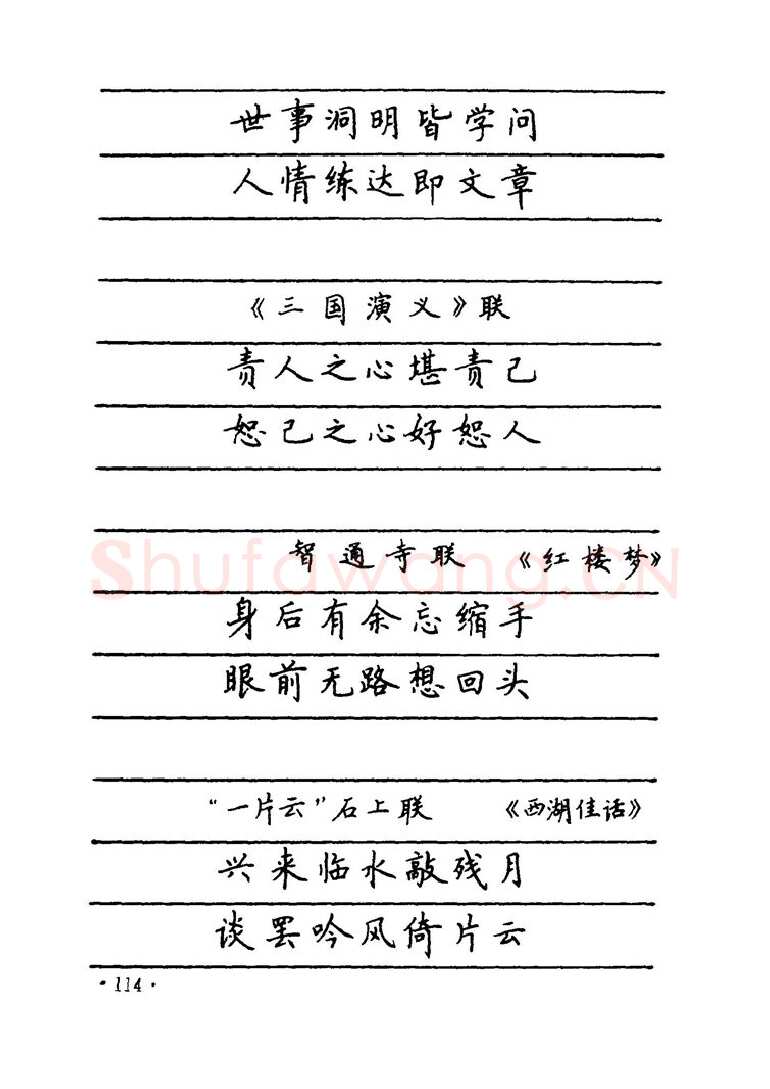 世事洞明皆学问
人情练达即文章
《三国演义》联
责人之心堪责己
恕己之心好恕人
智通寺联 《红楼梦》
Shufawang.CN
身后有余忘缩手
眼前无路想回头
“一片云”石上联 《西湖佳话》
兴来临水敲残月
谈罢吟风倚片云
·114·